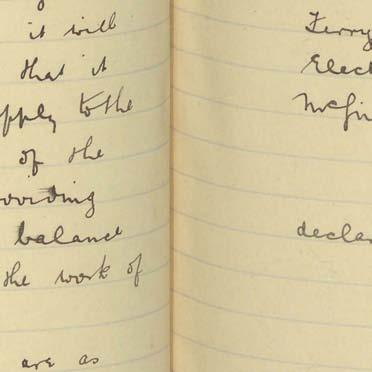 it will
that it
apply to the
of the
according
balance
the work of
are as
Ferry
Elect
McGi
declar